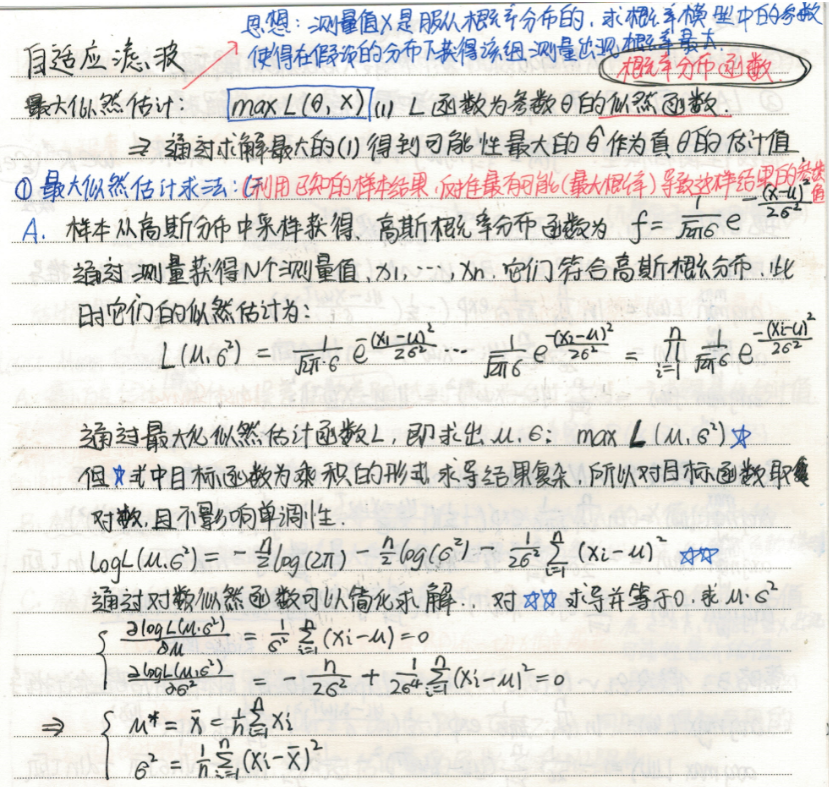 思想：测量值X是服从概率分布的，求概率模型中的参数
使得在假设的分布下获得该组测量出现概率最大.
自适应滤波
概率分布函数
最大似然估计： max L(θ, X) (1) L函数为参数θ的似然函数.
⇒ 通过求解最大的(1)得到可能性最大的θ̂作为真θ的估计值.
① 最大似然估计求法：(利用已知的样本结果，反推最有可能(最大概率)导致这样结果的参数值
A. 样本从高斯分布中采样获得，高斯概率分布函数为 f = 1/(√2π σ) e^(-(x-μ)²/2σ²)
通过测量获得N个测量值，x1, …, xn. 它们符合高斯概率分布，此
时它们的似然估计为：
L(μ, σ²) = 1/(√2π·σ) e^(-(x1-μ)²/2σ²) … 1/(√2π σ) e^(-(x2-μ)²/2σ²) = ∏_{i=1}^{n} 1/(√2π σ) e^(-(xi-μ)²/2σ²)
通过最大化似然估计函数L，即求出μ, σ： max L(μ, σ²) ☆
但☆式中目标函数为乘积的形式，求导结果复杂，所以对目标函数取
对数，且不影响单调性.
logL(μ, σ²) = - n/2 log(2π) - n/2 log(σ²) - 1/(2σ²) ∑_{i=1}^{n} (xi-μ)² ☆☆
通过对数似然函数可以简化求解. ∴ 对☆☆求导并等于0. 求μ·σ²
{ ∂logL(μ·σ²)/∂μ = 1/σ² ∑_{i=1}^{n} (xi-μ) = 0
∂logL(μ,σ²)/∂σ² = - n/(2σ²) + 1/(2σ⁴) ∑_{i=1}^{n} (xi-μ)² = 0
⇒ { μ* = x̄ = 1/n ∑_{i=1}^{n} xi
σ² = 1/n ∑_{i=1}^{n} (xi-x̄)²